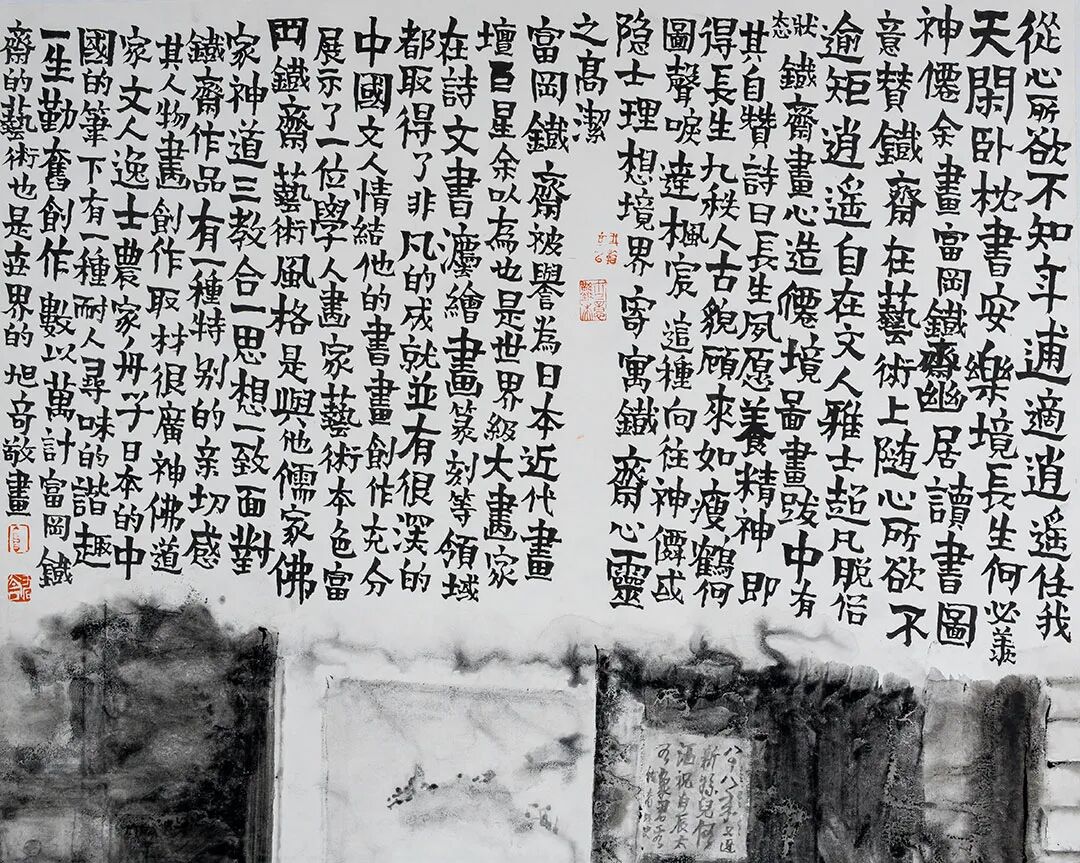 從心所欲不知年逋適逍遥任我
天閑卧枕書安樂境長生何必羡
神僊余畫富岡鐵齋幽居讀書圖
意賛鐵齋在藝術上隨心所欲不
逾矩逍遥自在文人雅士超凡脱俗
狀態鐵齋畫心造僊境啚畫跋中有
其自贊詩曰長生夙愿養精神即
得長生九秩人古貌顧來如瘦鶴何
圖聲唳達楓宸這種向往神僊或
隐士理想境界寄寓鐵齋心靈
之高潔
富岡鐵齋被譽為日本近代畫
壇巨星余以為也是世界級大畫家
在詩文書灋繪畫篆刻等領域
都取得了非凡的成就並有很深的
中國文人情結他的書畫創作充分
展示了一位學人畫家藝術本色富
岡鐵齋藝術風格是與他儒家佛
家神道三教合一思想一致面對
鐵齋作品有一種特别的亲切感
其人物畫創作取材很廣神佛道
家文人逸士農家舟子日本的中
國的筆下有一種耐人尋味的諧趣
一生勤奮創作數以萬計富岡鐵
齋的藝術也是世界的旭奇敬畫